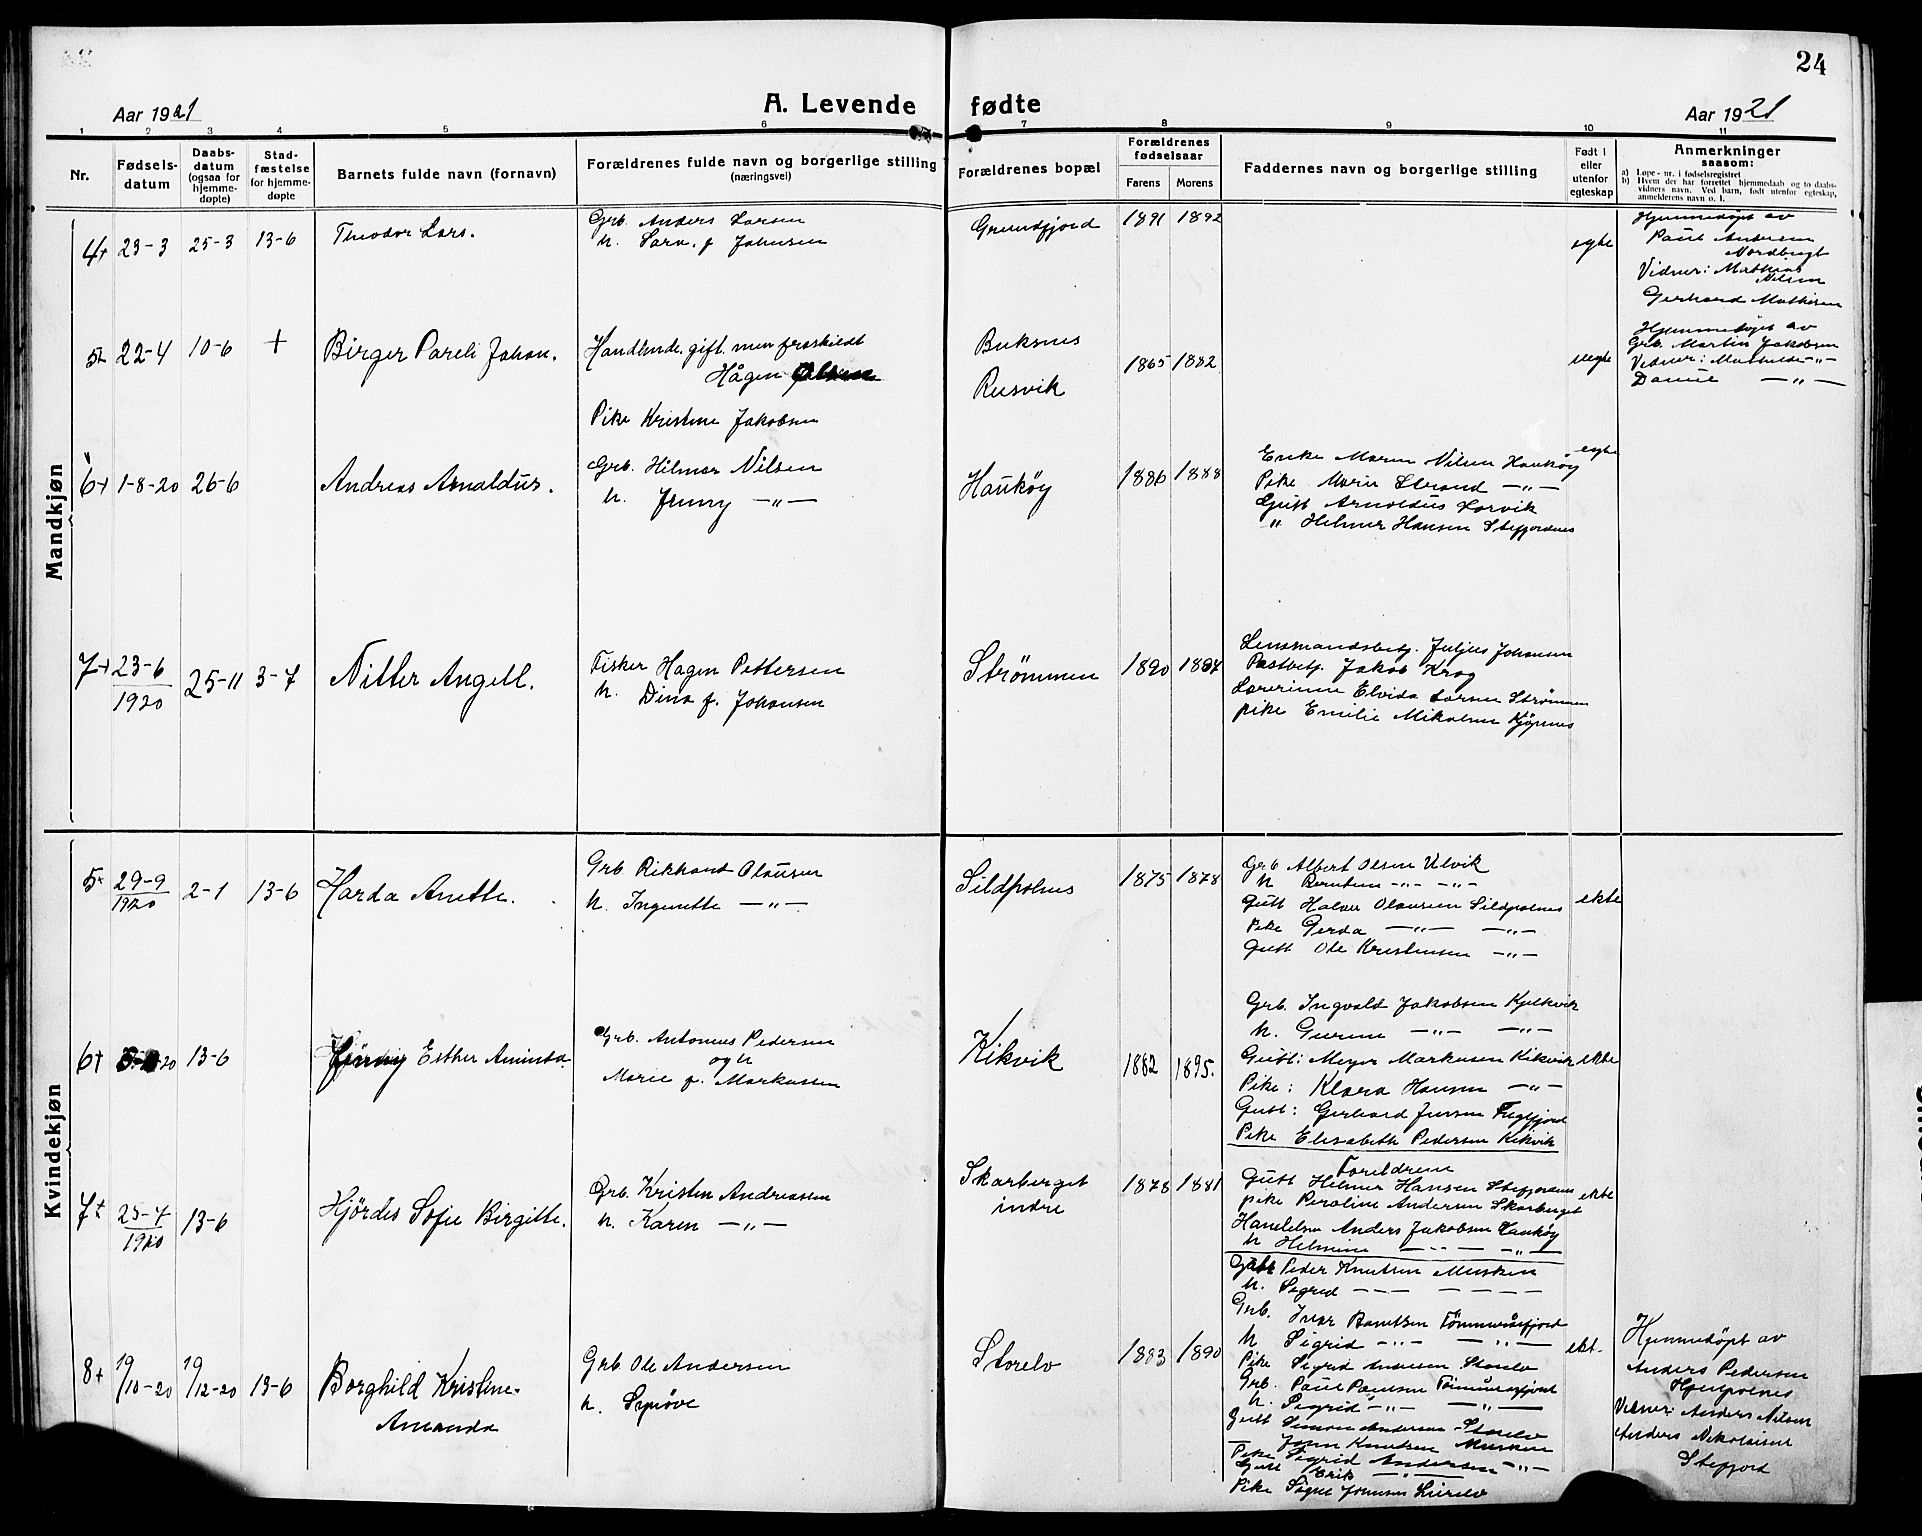 24
Aar 1921
A. Levende fødte
Aar 1921
1 2 3 4 5 6 7 8 9 10 11
Nr.
Fødsels-
datum
Daabs-
datum
(ogsaa for
hjemme-
døpte)
Stad-
fæstelse
for hjemme-
døpte
Barnets fulde navn (fornavn)
Forældrenes fulde navn og borgerlige stilling
(næringsvei)
Forældrenes bopæl
Forældrenes
fødselsaar
Farens Morens
Faddernes navn og borgerlige stilling
Født i
eller
utenfor
egteskap
Anmerkninger
saasom:
a) Løpe-nr. i fødselsregistret
b) Hvem der har forrettet hjemmedaab og to daabs-
vidners navn. Ved barn, født utenfor egteskap,
anmelderens navn o. l.
Mandkjøn
4+ 23-3 25-3 13-6 Theodor Lars.
Grb. Anders Larsen
h. Sara f. Johnsen
Grundfjord 1891 1892
egte
Hjemmedøpt av
Paul Andersen
Vidner: Mathias
Nilsen
Gerhard Mathisen
5+ 22-4 10-6 + Birger Pareli Johan.
Handlende, gift. men fraskildt
Hågen
Pike Kristine Jakobsen
Buksnes
Rusvik
1865 1882
uegte
Hjemmedøpt av
Grb. Martin Jakobsen
Vidner: Mathilde -"-
Daniel -"-
6+ 1-8-20 26-6 Andreas Arnaldus.
Grb. Hilmar Nilsen
h. Jenny -"-
Haukøy 1886 1888
Enke Maren Nilsen Haukøy
Pike Marie Strand -"-
Gutt Arnoldus Korvik
" Helmer Hansen Stefjordnes
egte
7+ 23-6
1920
25-11 3-7 Nitter Angell.
Fisker Hagen Pettersen
h. Dina f. Johansen
Strømmen 1890 1894
Lensmandsbetj. Juljus Johansen
Postbetj. Jakob Krog
Lærerinne Elvida Larsen Strømmen
pike Emilie Mikalsen Kjøpsnes
Kvindekjøn
5+ 29-9
1920
2-1 13-6 Harda Anette.
Grb Rikhard Olausen
h. Ingenette -"-
Sildpolnes 1875 1878
Grb Albert Olsen Ulvik
h Berntine -"- -"-
Gutt Halvor Olausen Sildpolnes
Pike Gerda -"- -"-
Gutt Ole Kristensen -"-
ekte
6+ 20 13-6 Jenny Esther Aminda
Grb. Antonius Pedersen
og h
Marie f. Markussen
Kikvik
1882 1895.
Grb. Ingvald Jakobsen Kjelkvik
h. Gurine -"- -"-
Gutt: Meyer Markusen Kikvik
Pike: Klara Hansen -"-
Gutt: Gerhard Jensen Fuglfjord
Pike Elisabeth Pedersen Kikvik
ekte
7+ 25-4
1920
13-6 Hjørdis Sofie Birgitte.
Grb. Kristen Andreassen
h. Karen -"-
Skarberget
indre
1878 1881
Foreldrene
Gutt Helmer Hansen Stefjordnes
pike Peroline Andersen Skarberget
Handelsm Anders Jakobsen Haukøy
h Helmine -"- -"-
ekte
8+ 19/10-20 19/12-20 13-6 Borghild Kristine
Amanda
Grb Ole Andersen
h. Synøve
Storelv 1883 1890
Gutt Peder Knutsen Musken
h. Sigrid -"- -"-
Grb. Ivar Bantsen Tømmeråsfjord
h Sigrid -"- -"-
Pike Sigrid Andersen Storelv
Grb. Paul Paulsen Tømmeråsfjord
h. Sigrid -"- -"-
Gutt Simon Andersen Storelv
John Knutsen Musken
Pike Sigrid Andersen -"-
Gutt Erik -"-
Pike Signe Johnsen
ekt.
Hjemmedøpt av
Anders Pedersen
Vidner: Anders Nilsen
Anders Nikolaisen
Stefjord